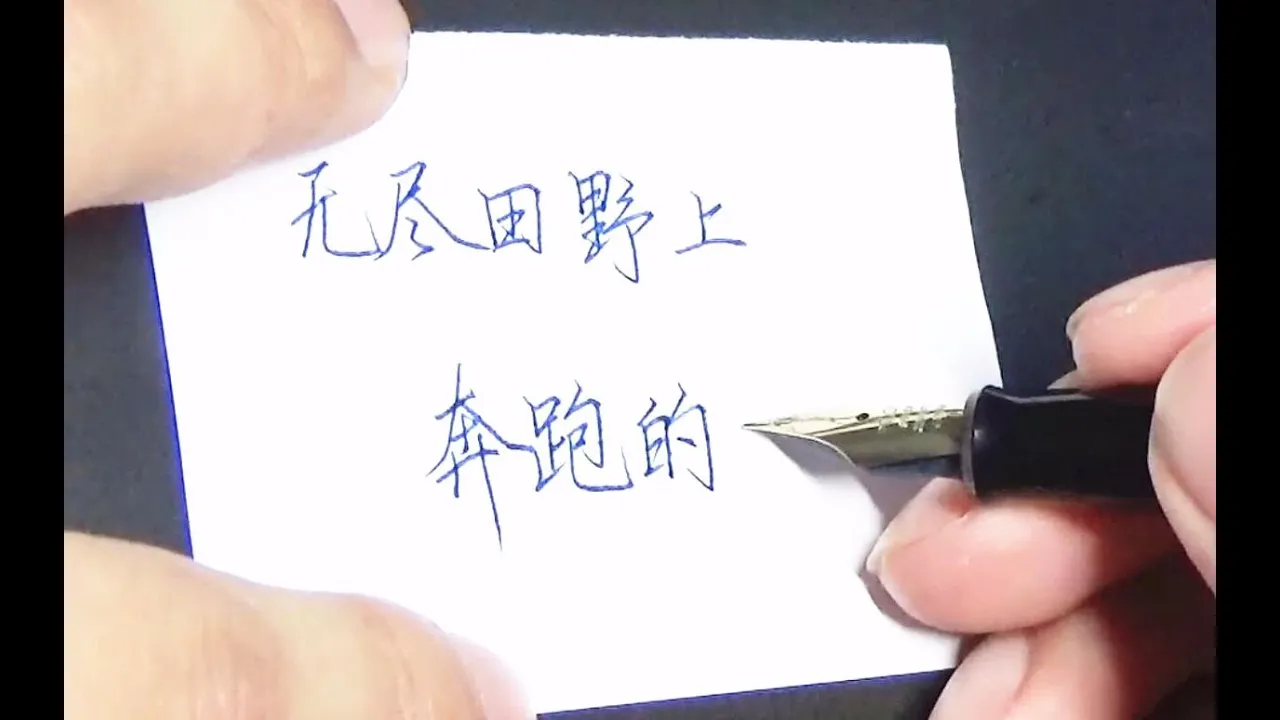 无尽田野上
奔跑的